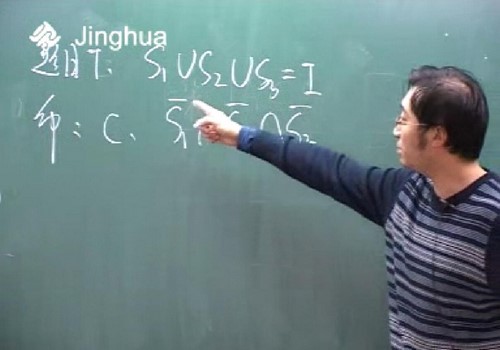 Jinghua
题目T: S₁∪S₂∪S₃=I
即: C、 S̅₁∩ ∩S̅₂